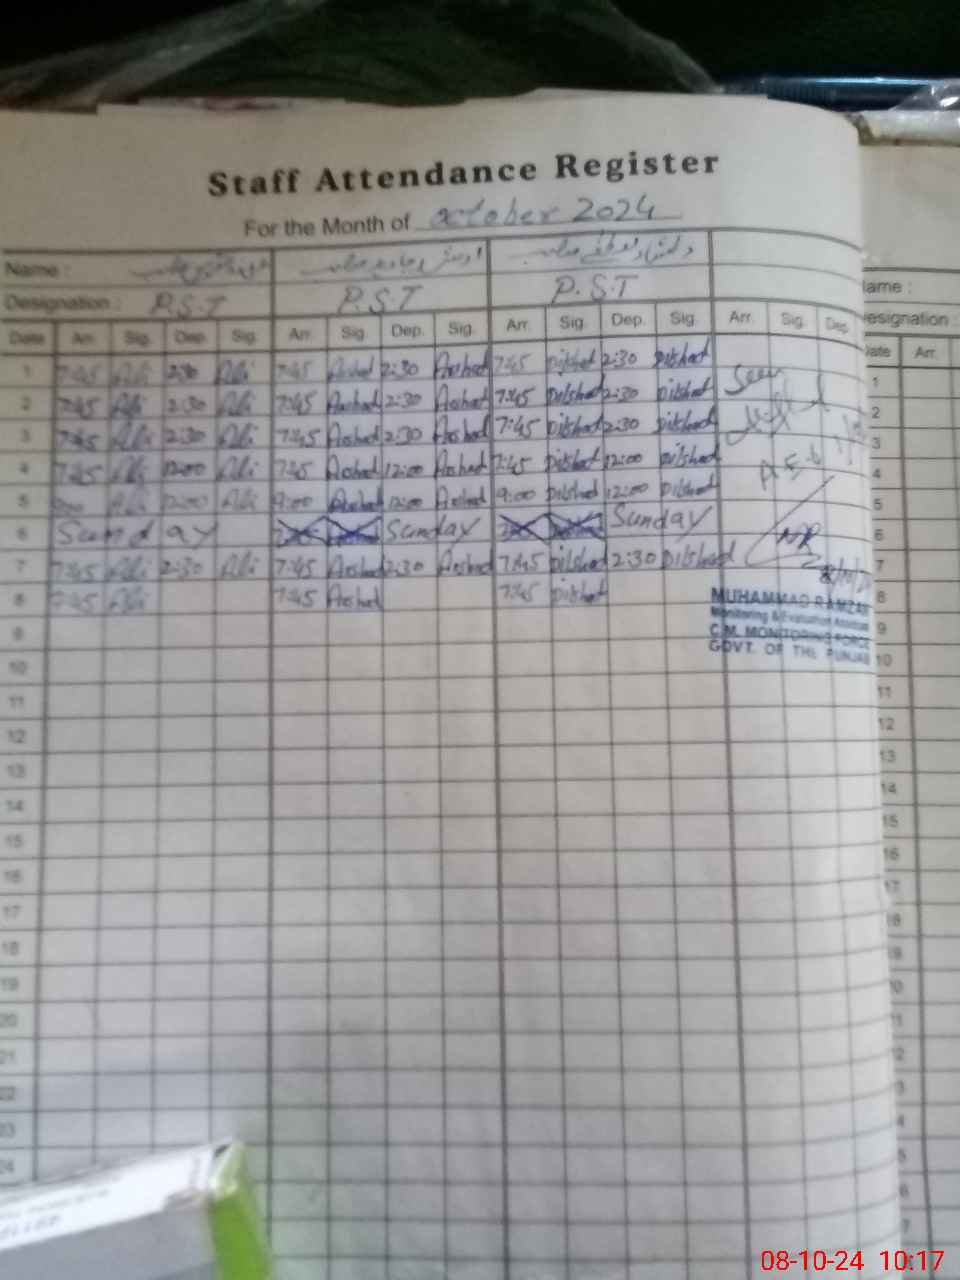 Staff Attendance Register
For the Month of October 2024
Name :
Designation : P.S.T P.S.T P.S.T
Date Arr. Sig. Dep. Sig. Arr. Sig. Dep. Sig. Arr. Sig. Dep. Sig. Arr. Sig. Dep.
1 7:45 Ali 2:30 Ali 7:45 Arshad 2:30 Arshad 7:45 Dilshad 2:30 Dilshad
2 7:45 Ali 2:30 Ali 7:45 Arshad 2:30 Arshad 7:45 Dilshad 2:30 Dilshad
3 7:45 Ali 2:30 Ali 7:45 Arshad 2:30 Arshad 7:45 Dilshad 2:30 Dilshad
4 7:45 Ali 12:00 Ali 7:45 Arshad 12:00 Arshad 7:45 Dilshad 12:00 Dilshad
5 9:00 Ali 12:00 Ali 9:00 Arshad 12:00 Arshad 9:00 Dilshad 12:00 Dilshad
6 Sunday Sunday Sunday
7 7:45 Ali 2:30 Ali 7:45 Arshad 2:30 Arshad 7:45 Dilshad 2:30 Dilshad
8 7:45 Ali 7:45 Arshad 7:45 Dilshad
9
10
11
12
13
14
15
16
17
18
19
20
21
22
23
24
Seen
MUHAMMAD RAMZAN
Monitoring & Evaluation Assistant
C.M. MONITORING FORCE
GOVT. OF THE PUNJAB
ame :
esignation :
ate Arr.
1
2
3
4
5
6
7
8
9
10
11
12
13
14
15
16
17
18
19
08-10-24 10:17